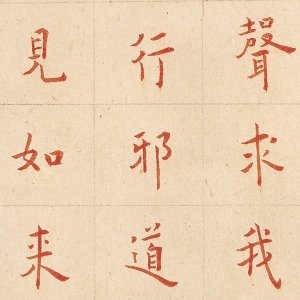 聲求我
行邪道
見如来